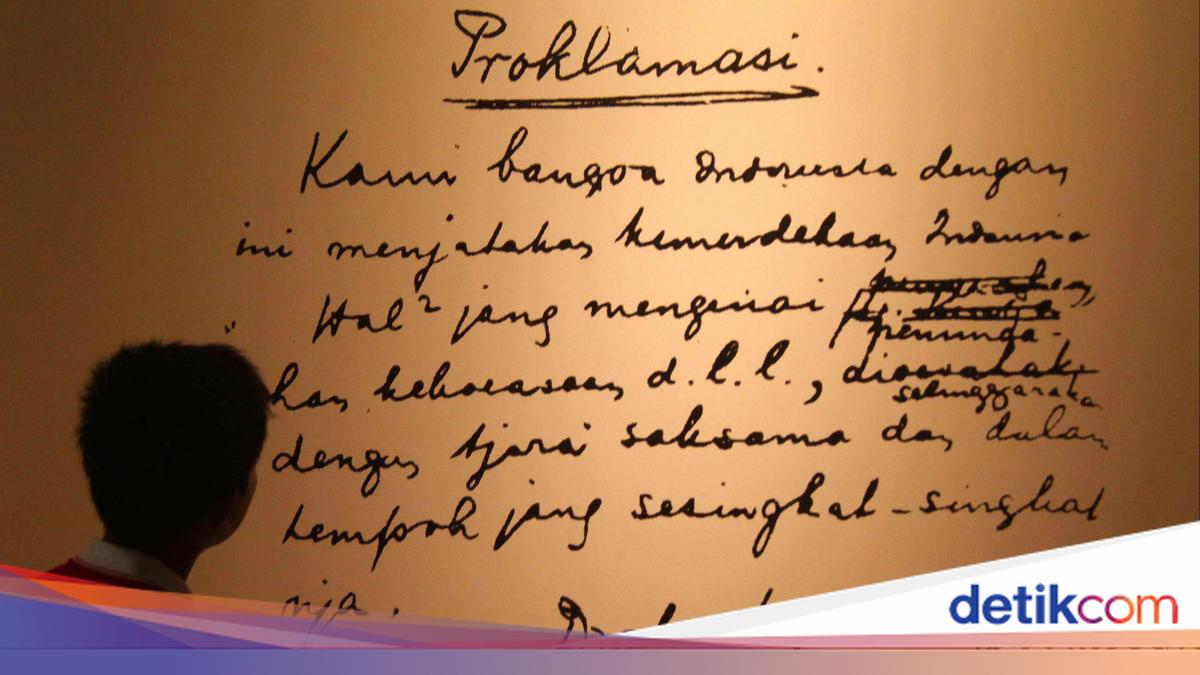 Proklamasi.
Kami bangsa Indonesia dengan
ini menjatakan kemerdekaan Indonesia
Hal² jang mengenai
peminda-
han kekoeasaan d.l.l., dioesahak
selenggaraka
dengan tjara saksama dan dalam
tempoh jang sesingkat-singkat
nja.
detikcom